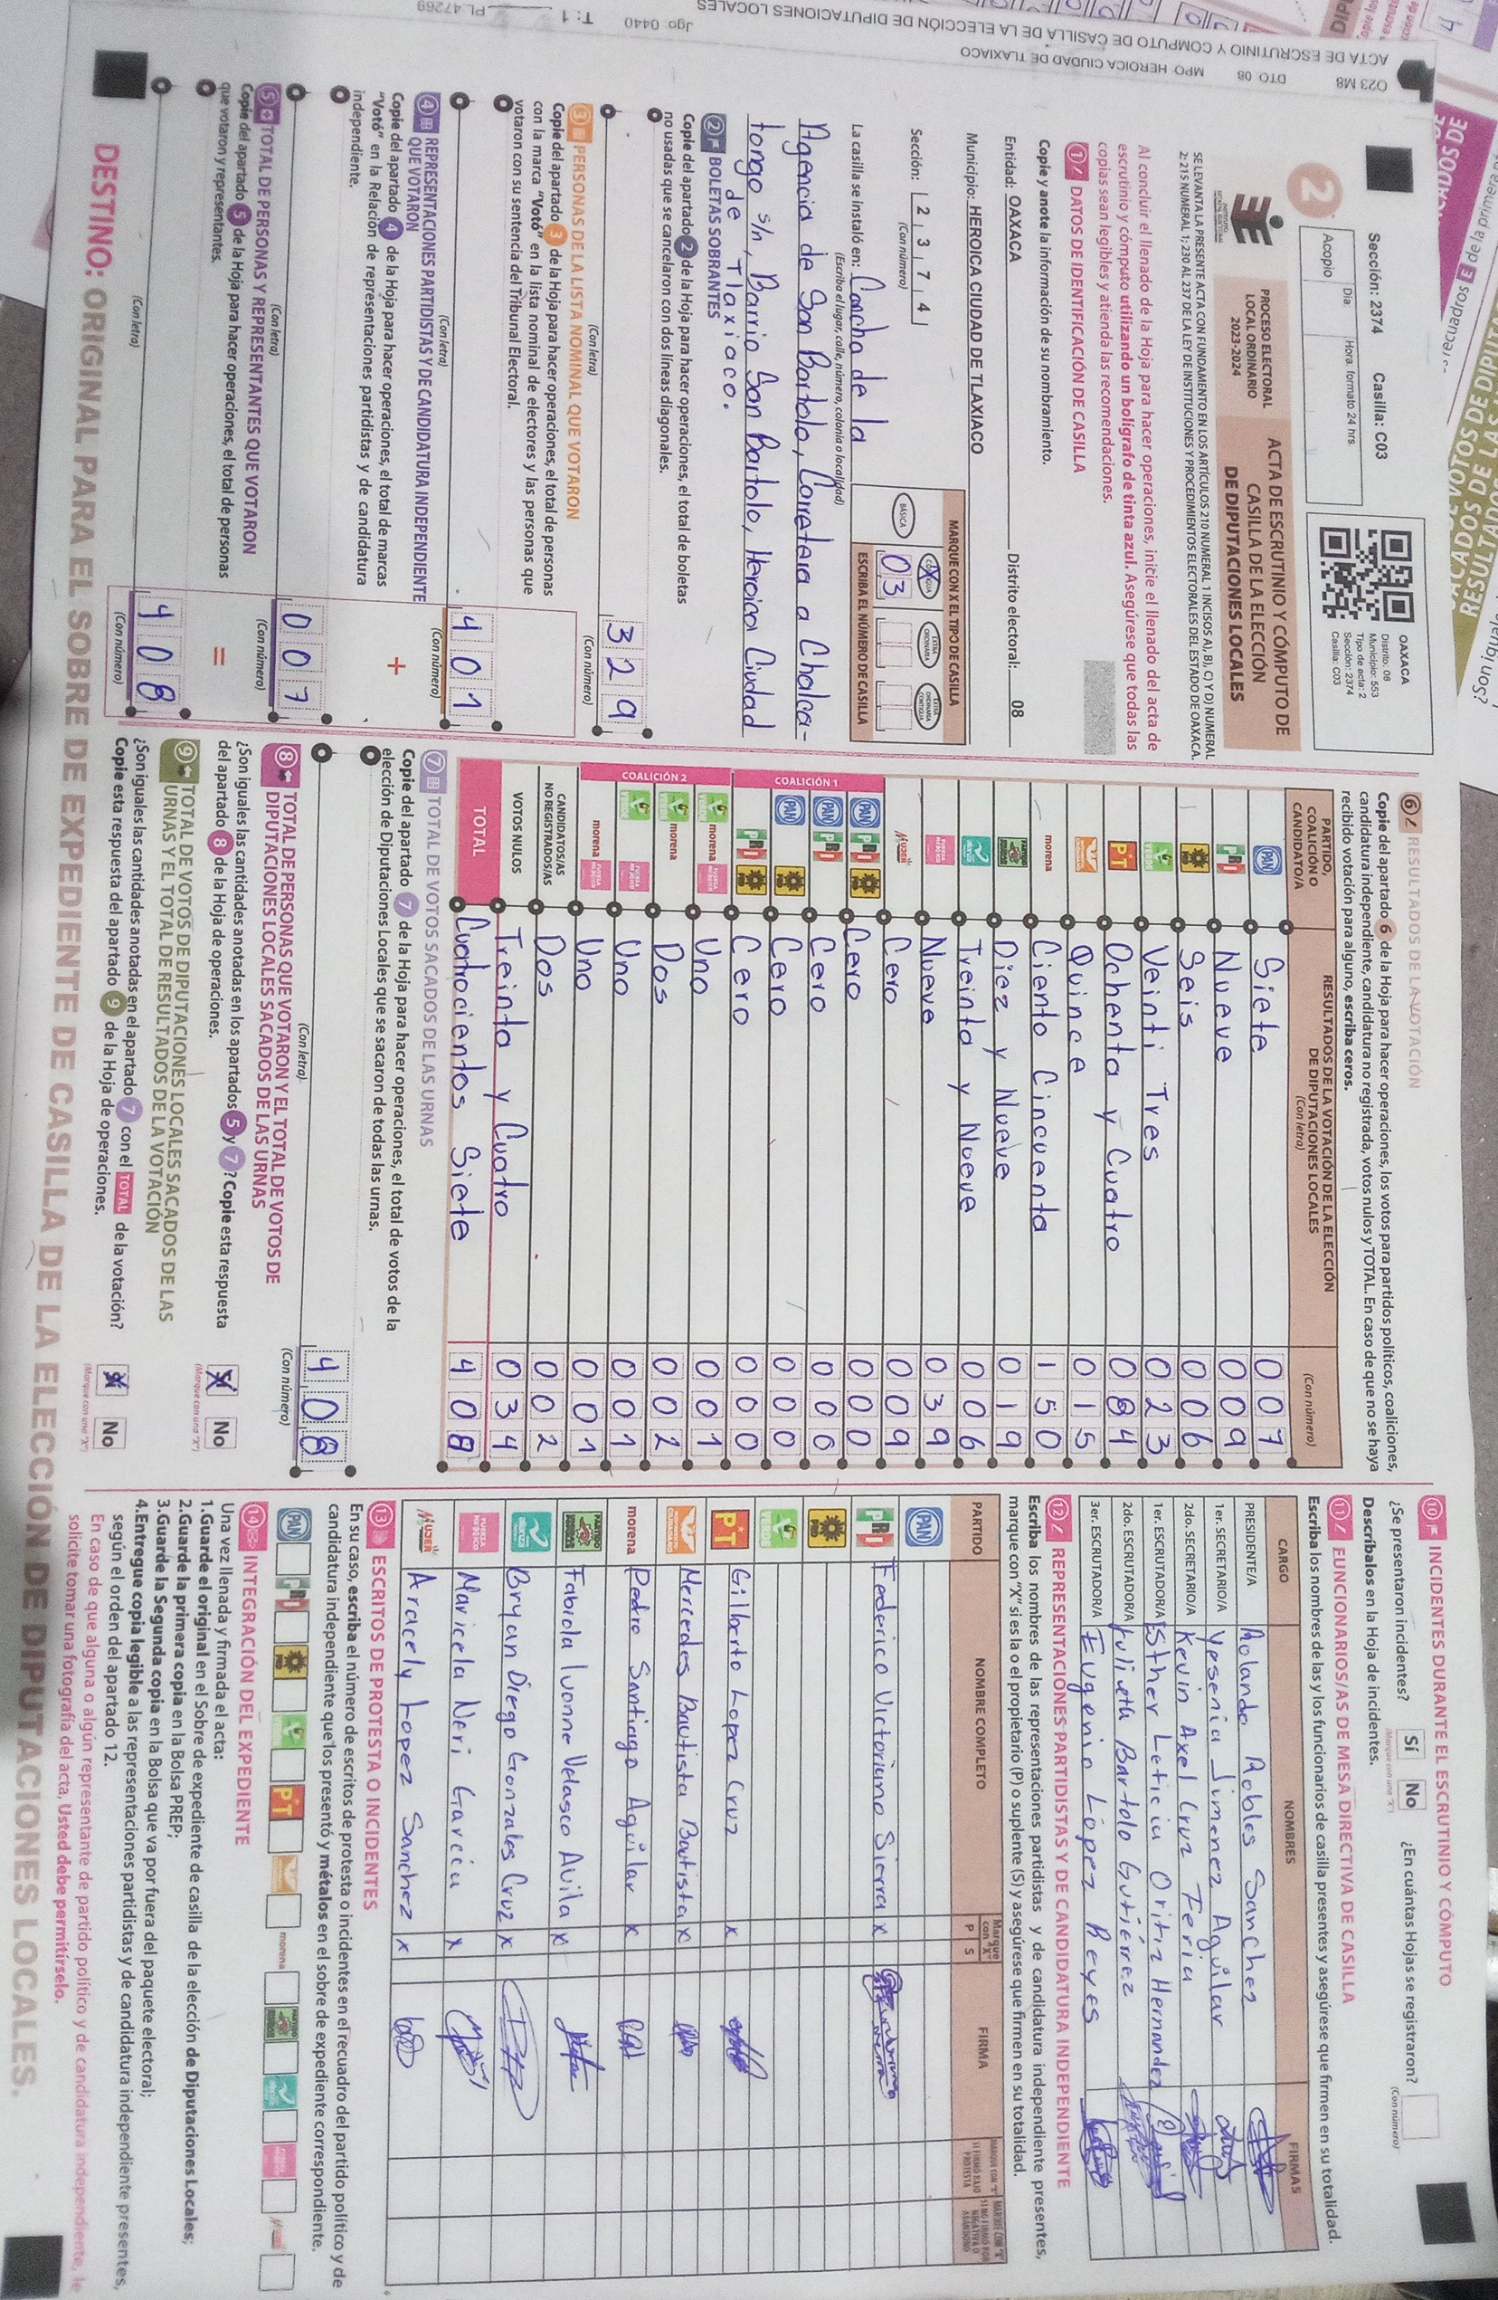 O23 M8 DTO 08 MPO HEROICA CIUDAD DE TLAXIACO
ACTA DE ESCRUTINIO Y CÓMPUTO DE CASILLA DE LA ELECCIÓN DE DIPUTACIONES LOCALES Jgo: 0440 T: 1 PL 47269
Sección: 2374 Casilla: C03
2
Acopio
Día Hora. formato 24 hrs
OAXACA
Distrito: 08
Municipio: 553
Tipo de acta: 2
Sección: 2374
Casilla: C03
PROCESO ELECTORAL
LOCAL ORDINARIO
2023-2024
ACTA DE ESCRUTINIO Y CÓMPUTO DE
CASILLA DE LA ELECCIÓN
DE DIPUTACIONES LOCALES
SE LEVANTA LA PRESENTE ACTA CON FUNDAMENTO EN LOS ARTÍCULOS 210 NUMERAL 1 INCISOS A), B), C) Y D) NUMERAL
2; 215 NUMERAL 1; 230 AL 237 DE LA LEY DE INSTITUCIONES Y PROCEDIMIENTOS ELECTORALES DEL ESTADO DE OAXACA.
Al concluir el llenado de la Hoja para hacer operaciones, inicie el llenado del acta de
escrutinio y cómputo utilizando un bolígrafo de tinta azul. Asegúrese que todas las
copias sean legibles y atienda las recomendaciones.
1 DATOS DE IDENTIFICACIÓN DE CASILLA
Copie y anote la información de su nombramiento.
Entidad: OAXACA Distrito electoral: 08
Municipio: HEROICA CIUDAD DE TLAXIACO
Sección: 2 3 7 4
(Con número)
MARQUE CON X EL TIPO DE CASILLA
BÁSICA
03
ESCRIBA EL NÚMERO DE CASILLA
La casilla se instaló en: Cancha de la
(Escriba el lugar, calle, número, colonia o localidad)
Agencia de San Bartolo, Carretera a Chalca-
tongo s/n, Barrio San Bartolo, Heroica Ciudad
de Tlaxiaco.
2 BOLETAS SOBRANTES
Copie del apartado 2 de la Hoja para hacer operaciones, el total de boletas
no usadas que se cancelaron con dos líneas diagonales.
3 2 9
(Con letra) (Con número)
3 PERSONAS DE LA LISTA NOMINAL QUE VOTARON
Copie del apartado 3 de la Hoja para hacer operaciones, el total de personas
con la marca "Votó" en la lista nominal de electores y las personas que
votaron con su sentencia del Tribunal Electoral.
4 0 1
(Con letra) (Con número)
4 REPRESENTACIONES PARTIDISTAS Y DE CANDIDATURA INDEPENDIENTE
QUE VOTARON
Copie del apartado 4 de la Hoja para hacer operaciones, el total de marcas
"Votó" en la Relación de representaciones partidistas y de candidatura
independiente.
+
0 0 7
(Con letra) (Con número)
5 TOTAL DE PERSONAS Y REPRESENTANTES QUE VOTARON
Copie del apartado 5 de la Hoja para hacer operaciones, el total de personas
que votaron y representantes.
=
4 0 8
(Con letra) (Con número)
6 RESULTADOS DE LA VOTACIÓN
Copie del apartado 6 de la Hoja para hacer operaciones, los votos para partidos políticos, coaliciones,
candidatura independiente, candidatura no registrada, votos nulos y TOTAL. En caso de que no se haya
recibido votación para alguno, escriba ceros.
PARTIDO, COALICIÓN O CANDIDATO/A
RESULTADOS DE LA VOTACIÓN DE LA ELECCIÓN DE DIPUTACIONES LOCALES
(Con letra) (Con número)
PAN Siete 0 0 7
PRI Nueve 0 0 9
PRD Seis 0 0 6
VERDE Veinti Tres 0 2 3
PT Ochenta y Cuatro 0 8 4
Quince 0 1 5
morena Ciento Cincuenta 1 5 0
Diez y Nueve 0 1 9
Treinta y Nueve 0 0 6
Nueve 0 3 9
MUJER Cero 0 0 9
COALICIÓN 1
PAN PRI PRD Cero 0 0 0
PAN PRI Cero 0 0 0
PAN PRD Cero 0 0 0
PRI PRD Cero 0 0 0
COALICIÓN 2
VERDE morena Uno 0 0 1
VERDE morena Dos 0 0 2
VERDE Uno 0 0 1
morena Uno 0 0 1
CANDIDATOS/AS NO REGISTRADOS/AS Dos 0 0 2
VOTOS NULOS Treinta y Cuatro 0 3 4
TOTAL Cuatrocientos Siete 4 0 8
7 TOTAL DE VOTOS SACADOS DE LAS URNAS
Copie del apartado 7 de la Hoja para hacer operaciones, el total de votos de la
elección de Diputaciones Locales que se sacaron de todas las urnas.
4 0 8
(Con letra) (Con número)
8 TOTAL DE PERSONAS QUE VOTARON Y EL TOTAL DE VOTOS DE
DIPUTACIONES LOCALES SACADOS DE LAS URNAS
¿Son iguales las cantidades anotadas en los apartados 5 y 7? Copie esta respuesta
del apartado 8 de la Hoja de operaciones.
No
(Marque con una "X")
9 TOTAL DE VOTOS DE DIPUTACIONES LOCALES SACADOS DE LAS
URNAS Y EL TOTAL DE RESULTADOS DE LA VOTACIÓN
¿Son iguales las cantidades anotadas en el apartado 7 con el TOTAL de la votación?
Copie esta respuesta del apartado 9 de la Hoja de operaciones.
No
(Marque con una "X")
10 INCIDENTES DURANTE EL ESCRUTINIO Y CÓMPUTO
¿Se presentaron incidentes? Sí No ¿En cuántas Hojas se registraron?
(Marque con una "X") (Con número)
Descríbalos en la Hoja de incidentes.
11 FUNCIONARIOS/AS DE MESA DIRECTIVA DE CASILLA
Escriba los nombres de las y los funcionarios de casilla presentes y asegúrese que firmen en su totalidad.
CARGO NOMBRES FIRMAS
PRESIDENTE/A Rolando Robles Sanchez
1er. SECRETARIO/A Yesenia Jimenez Aguilar
2do. SECRETARIO/A Kevin Axel Cruz Feria
1er. ESCRUTADOR/A Esther Leticia Oritiz Hernandez
2do. ESCRUTADOR/A Julieta Bartolo Gutiérrez
3er. ESCRUTADOR/A Eugenio López Reyes
12 REPRESENTACIONES PARTIDISTAS Y DE CANDIDATURA INDEPENDIENTE
Escriba los nombres de las representaciones partidistas y de candidatura independiente presentes,
marque con "X" si es la o el propietario (P) o suplente (S) y asegúrese que firmen en su totalidad.
PARTIDO NOMBRE COMPLETO Marque con "X" P S FIRMA
PAN
PRI Federico Victoriano Sierra x
PRD
VERDE
PT Gilberto Lopez Cruz x
Mercedes Bautista Bautista x
morena Pedro Santiago Aguilar x
Fabiola Ivonne Velasco Avila x
Bryan Diego Gonzales Cruz x
Maricela Neri García x
MUJER Aracely Lopez Sanchez x
13 ESCRITOS DE PROTESTA O INCIDENTES
En su caso, escriba el número de escritos de protesta o incidentes en el recuadro del partido político y de
candidatura independiente que los presentó y métalos en el sobre de expediente correspondiente.
PAN PRI PRD VERDE PT morena
14 INTEGRACIÓN DEL EXPEDIENTE
Una vez llenada y firmada el acta:
1.Guarde el original en el Sobre de expediente de casilla de la elección de Diputaciones Locales;
2.Guarde la primera copia en la Bolsa PREP;
3.Guarde la Segunda copia en la Bolsa que va por fuera del paquete electoral;
4.Entregue copia legible a las representaciones partidistas y de candidatura independiente presentes,
según el orden del apartado 12.
En caso de que alguna o algún representante de partido político y de candidatura independiente, le
solicite tomar una fotografía del acta, Usted debe permitírselo.
DESTINO: ORIGINAL PARA EL SOBRE DE EXPEDIENTE DE CASILLA DE LA ELECCIÓN DE DIPUTACIONES LOCALES.